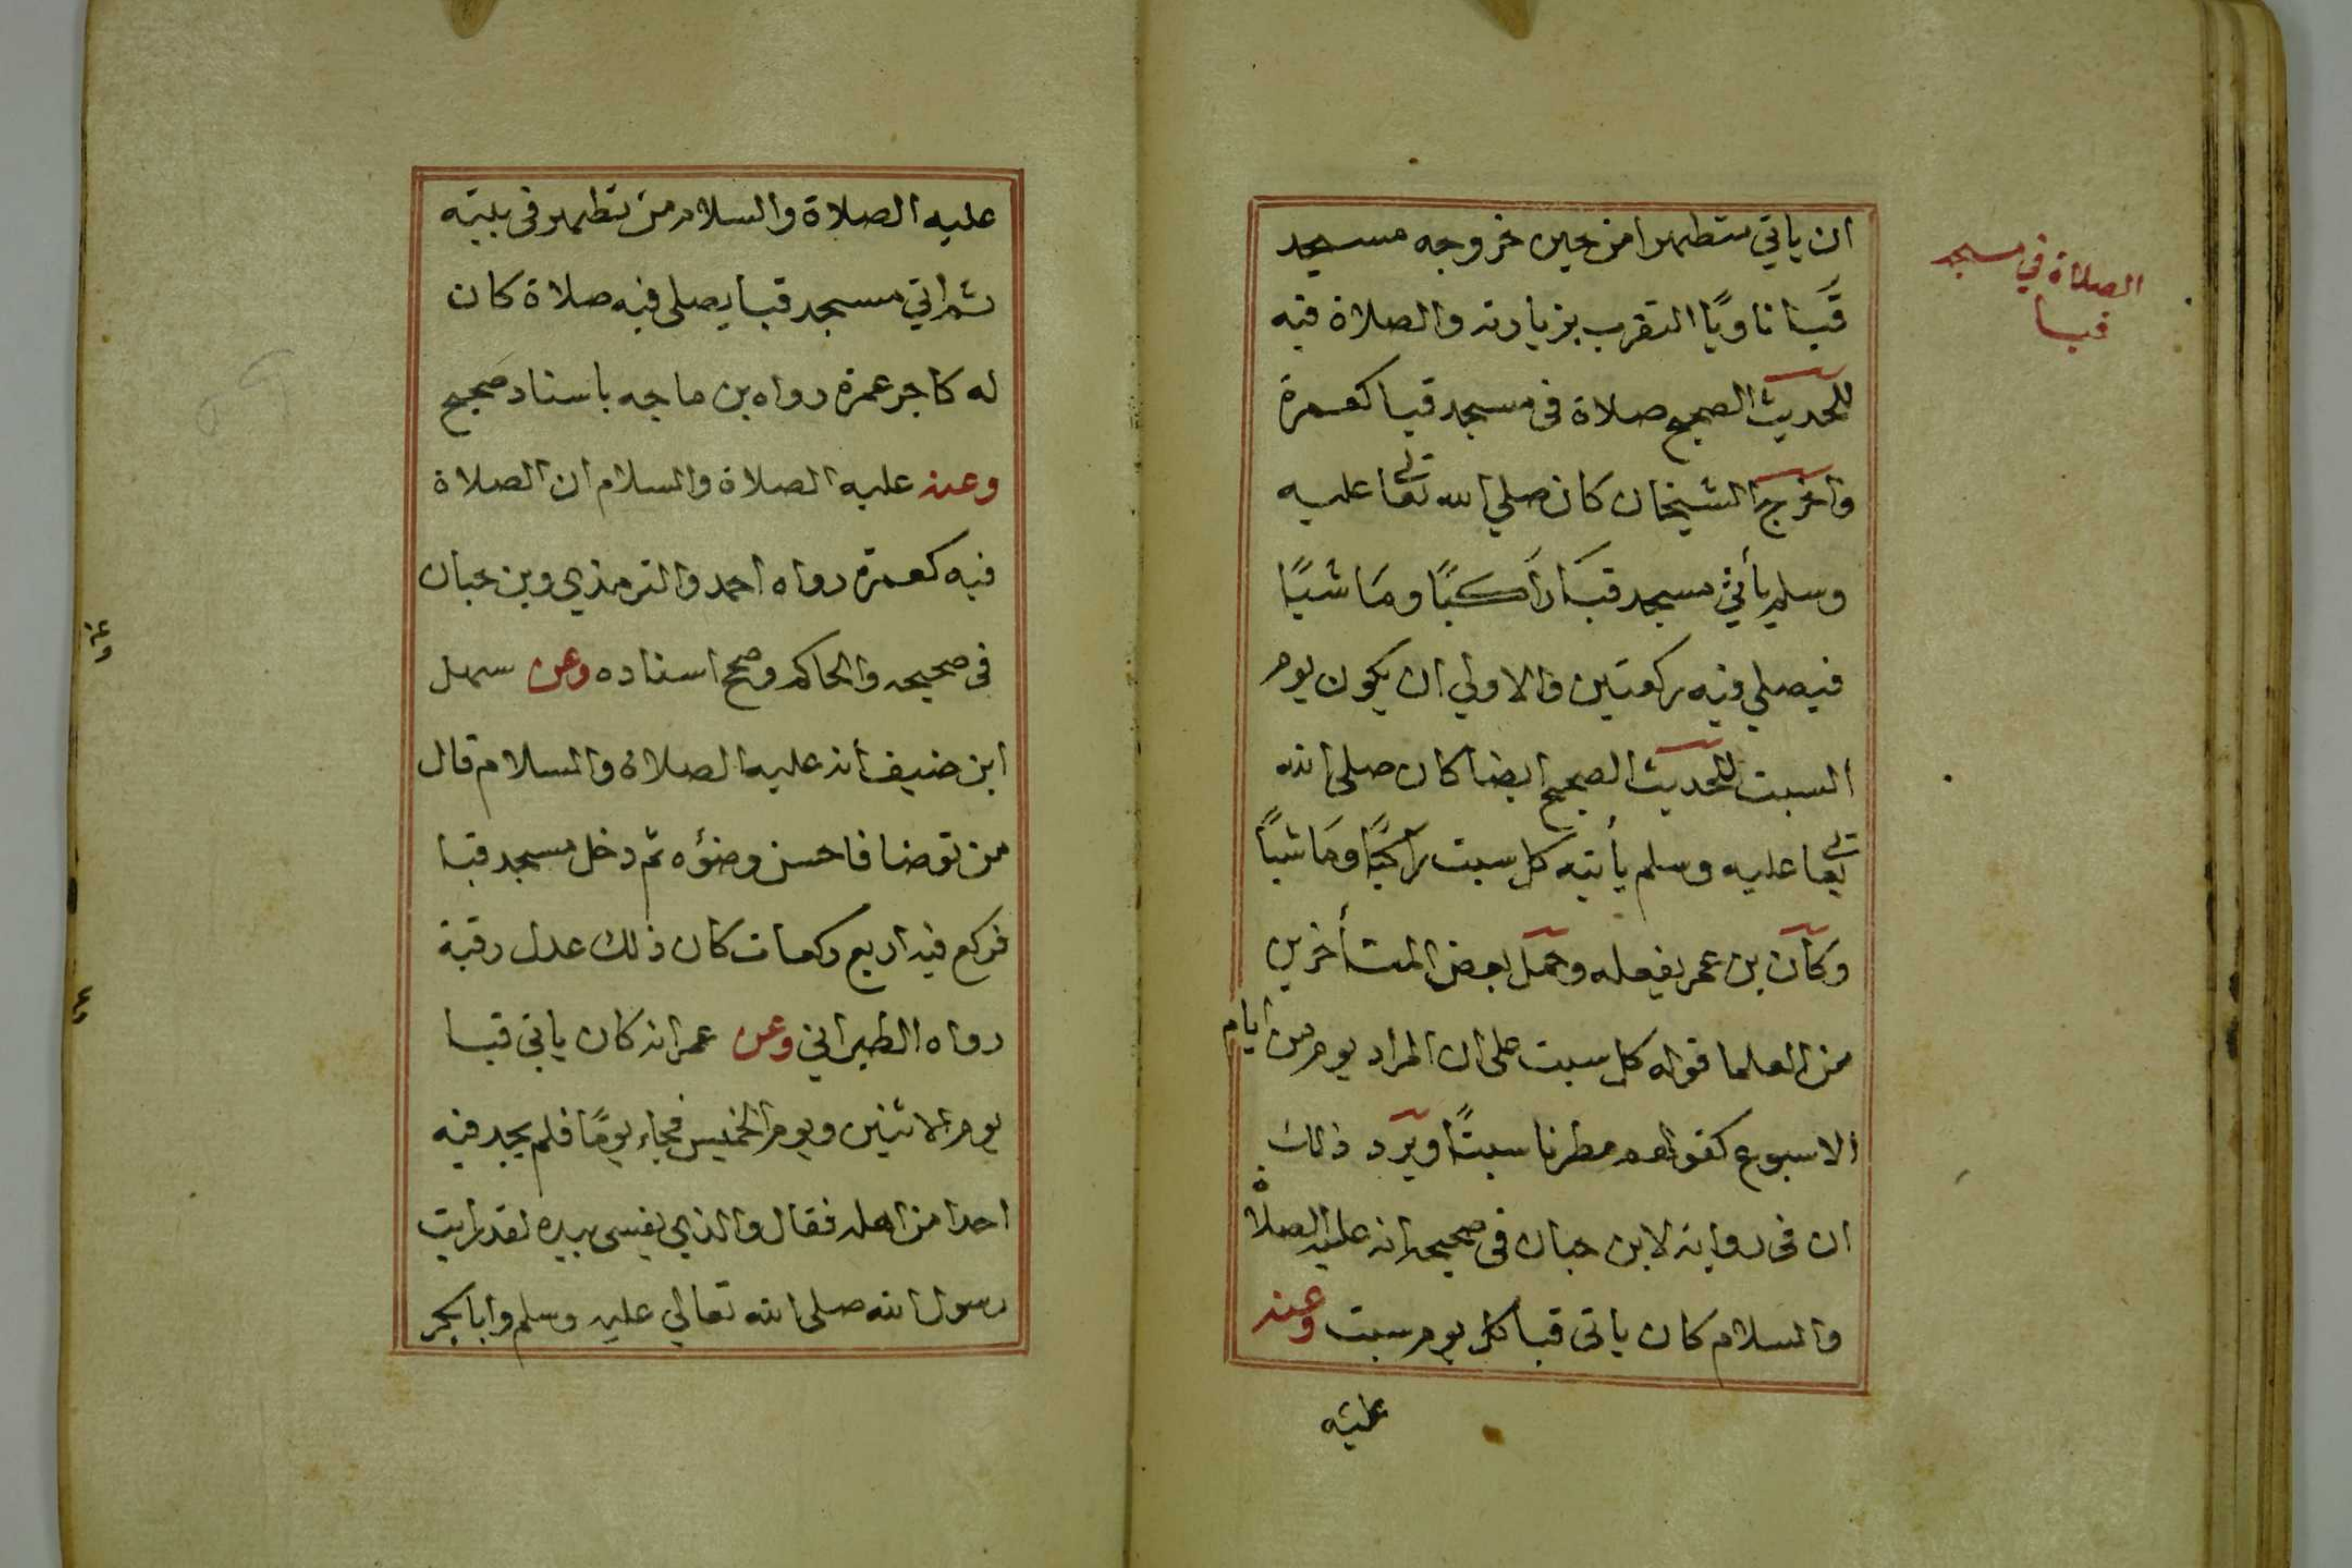 الصلاة في مسجد
قبا
ان ياتي متطهرا من حين خروجه مسجد
قَبا ناويًا التقرب بزيارته والصلاة فيه
للحديث الصحيح صلاة فى مسجد قبا كعمرة
واخرج الشيخان كان صلي الله تعالى عليه
وسلم يأتي مسجد قبَا رَاكبًا ومَاشيًا
فيصلي فيه ركعتين والاولي ان يكون يوم
السبت للحديث الصحيح ايضا كان صلى الله
تعالى عليه وسلم يأتيه كل سبت راكبًا ومَاشيًا
وكان بن عمر يفعله وحمل بعض المتأخرين
من العلما قوله كل سبت على ان المراد يوم من ايام
الاسبوع كقولهم مطرنا سبتًا ويرد ذلك
ان فى رواية لابن حبان فى صحيحه انه عليه الصلاة
والسلام كان ياتى قبا كل يوم سبت وعنه
عليه
عليه الصلاة والسلام من تطهر فى بيته
ثم اتي مسجد قبا يصلى فيه صلاة كان
له كاجر عمرة رواه بن ماجه باسناد صحيح
وعنه عليه الصلاة والسلام ان الصلاة
فيه كعمرة رواه احمد والترمذي وبن حبان
فى صحيحه والحاكم وصح اسناده وعن سهل
ابن حنيف أنه عليه الصلاة والسلام قال
من توضا فاحسن وضؤه ثم دخل مسجد قبا
فركع فيه اربع ركعات كان ذلك عدل رقبة
رواه الطبراني وعن عمر انه كان ياتى قبا
يوم الاثنين ويوم الخميس فجاء يومًا فلم يجد فيه
احدا من اهله فقال والذي نفسى بيده لقد رايت
رسول الله صلى الله تعالي عليه وسلم وابا بكر